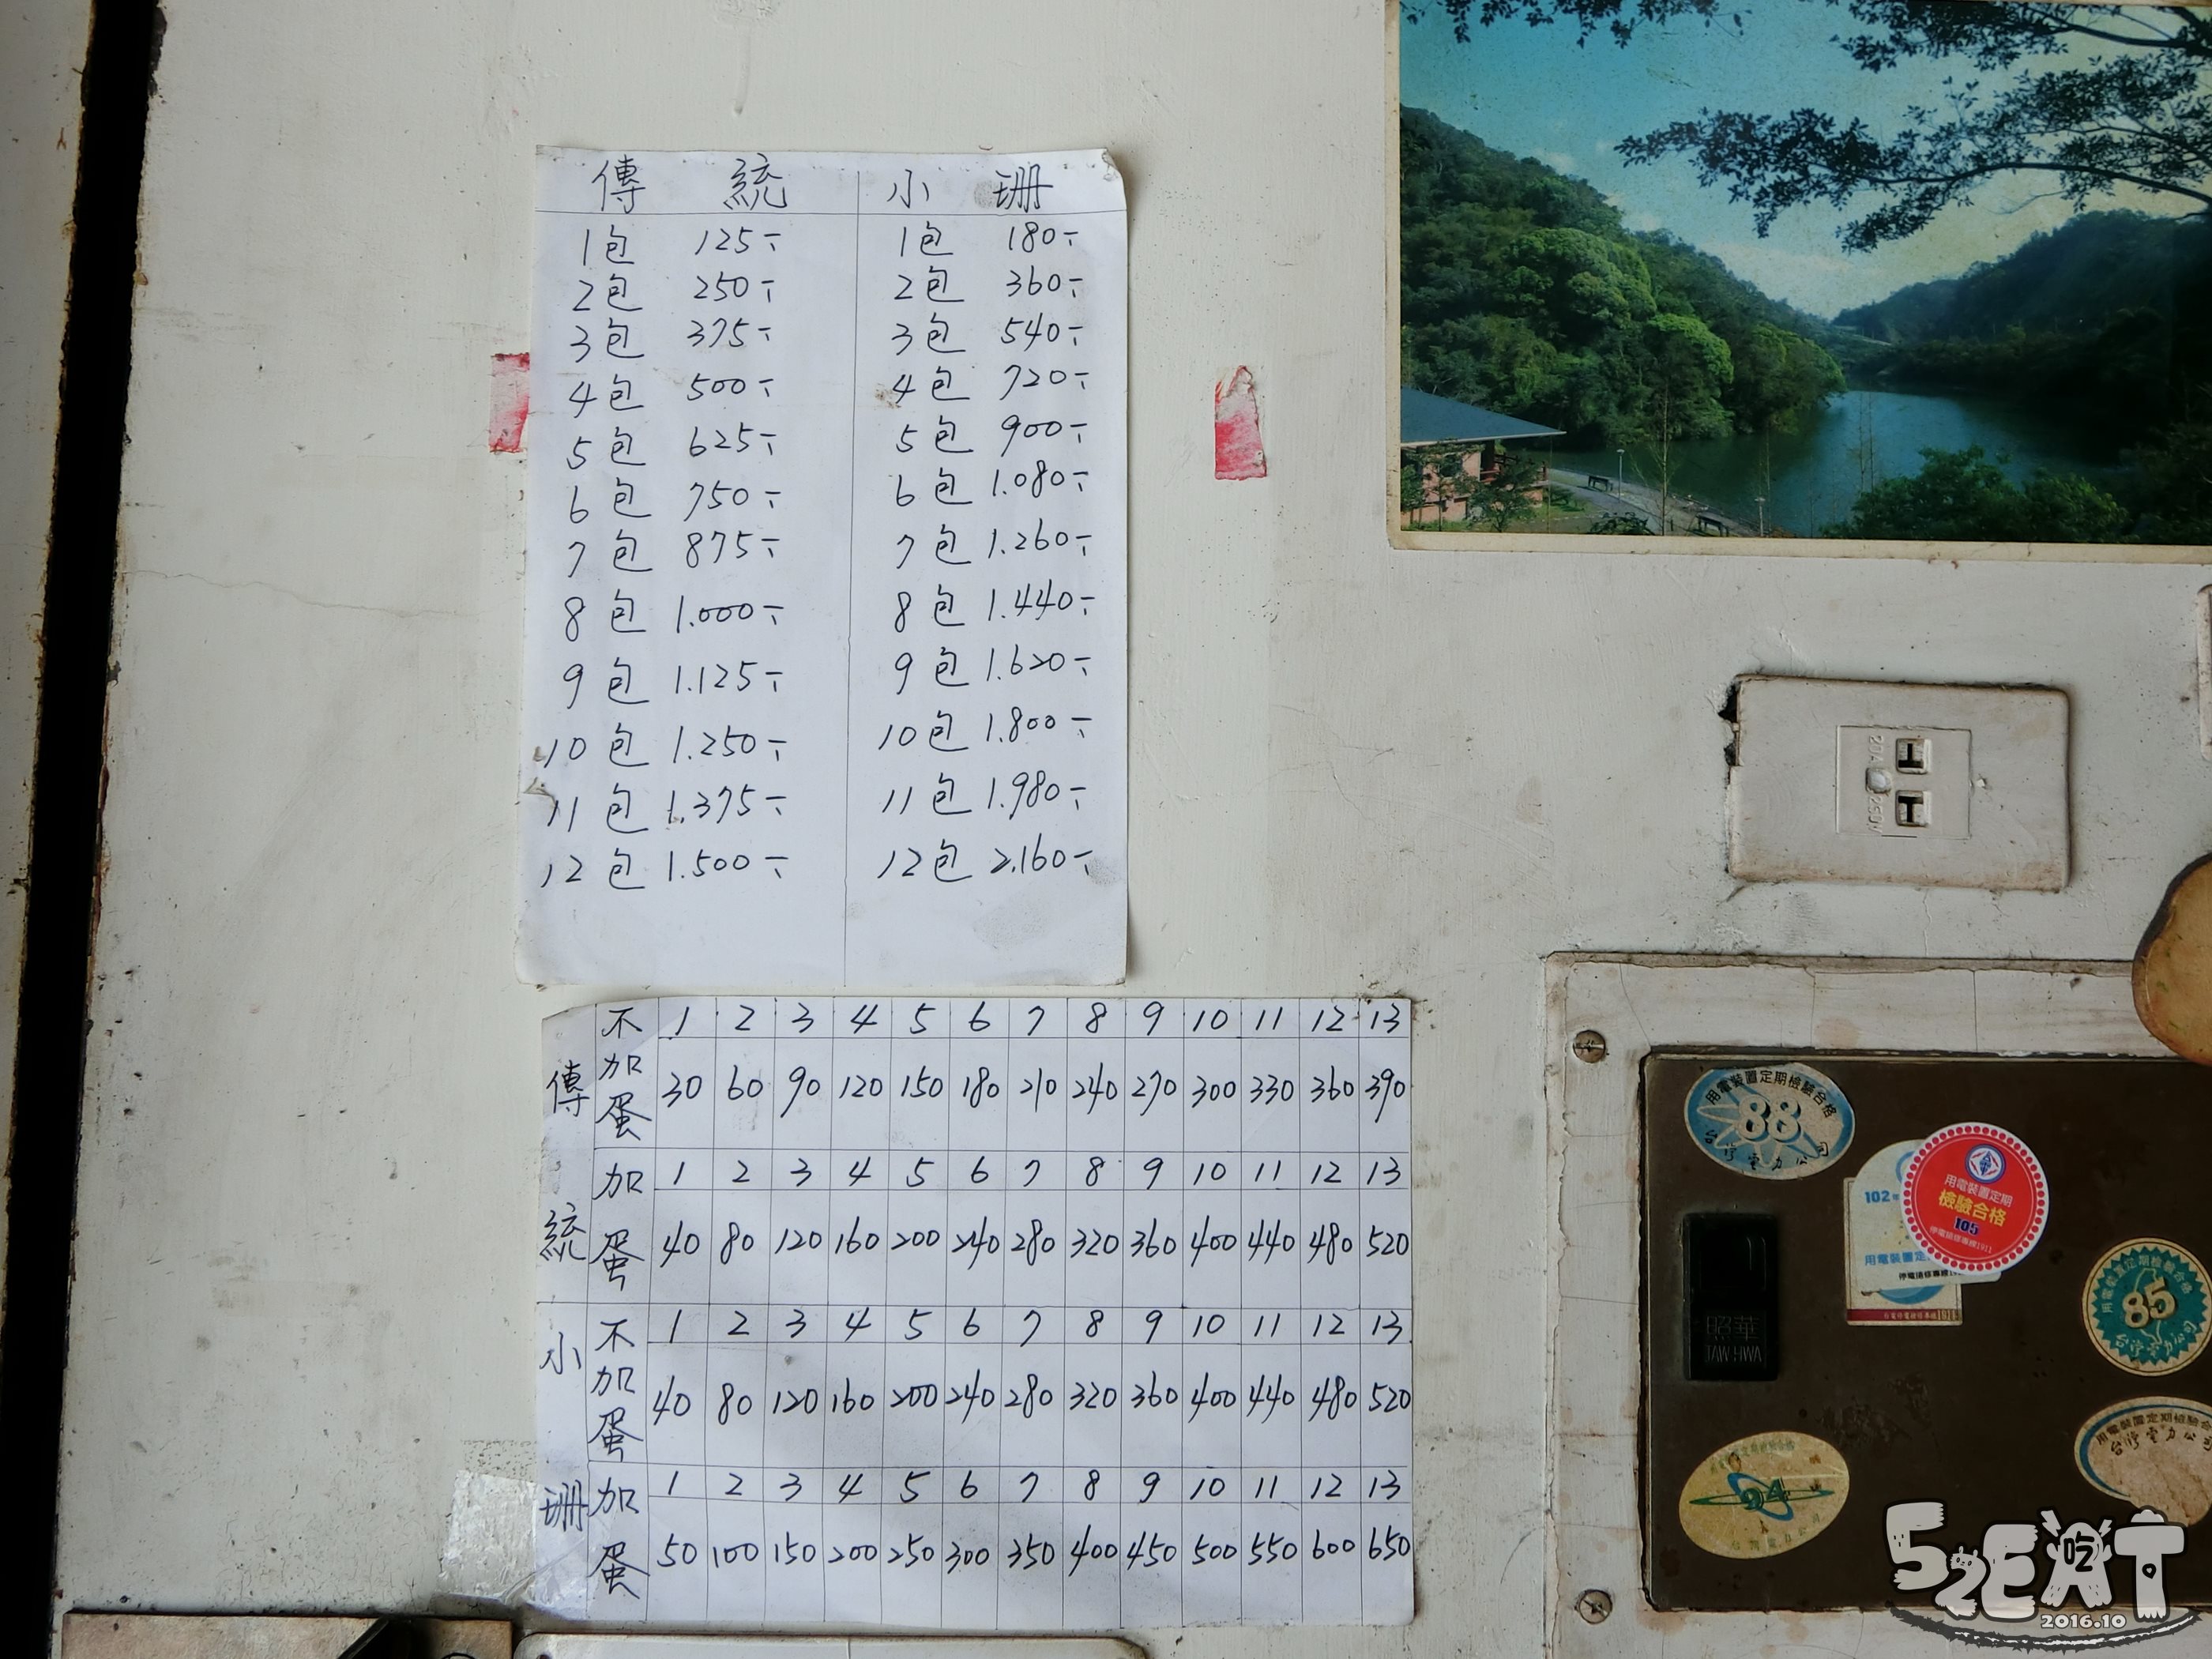 傳 統 小 珊
1包 125- 1包 180-
2包 250- 2包 360-
3包 375- 3包 540-
4包 500- 4包 720-
5包 625- 5包 900-
6包 750- 6包 1.080-
7包 875- 7包 1.260-
8包 1.000- 8包 1.440-
9包 1.125- 9包 1.620-
10包 1.250- 10包 1.800-
11包 1.375- 11包 1.980-
12包 1.500- 12包 2.160-
傳統
不加蛋
1 2 3 4 5 6 7 8 9 10 11 12 13
30 60 90 120 150 180 210 240 270 300 330 360 390
加蛋
1 2 3 4 5 6 7 8 9 10 11 12 13
40 80 120 160 200 240 280 320 360 400 440 480 520
小珊
不加蛋
1 2 3 4 5 6 7 8 9 10 11 12 13
40 80 120 160 200 240 280 320 360 400 440 480 520
加蛋
1 2 3 4 5 6 7 8 9 10 11 12 13
50 100 150 200 250 300 350 400 450 500 550 600 650
用電裝置定期檢驗合格
88
台灣電力公司
102年
用電裝置定
用電裝置定期
檢驗合格
105
停電搶修專線1911
用電裝置定期檢驗合格
85
台灣電力公司
照華
TAW HWA
94
用電裝置定期檢驗合
台灣電力公司
52EAT
吃
2016.10